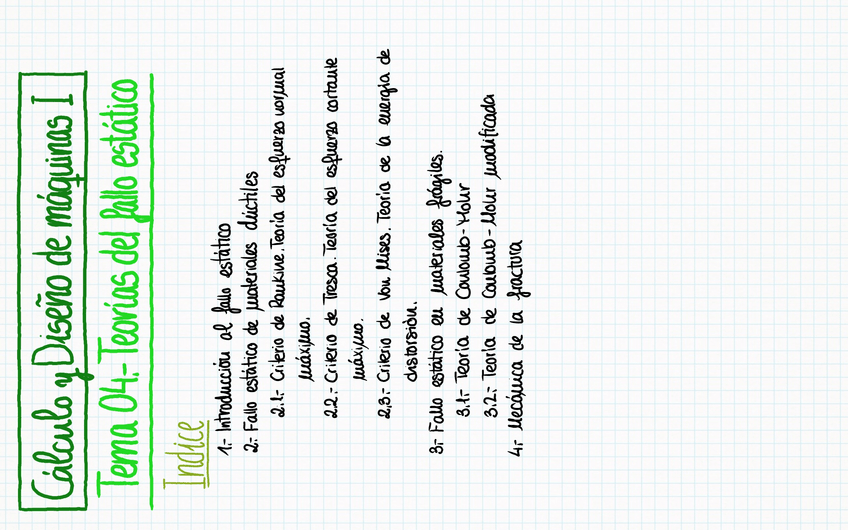 Cálculo y Diseño de máquinas I
Tema 04.- Teorías del fallo estático
Indice
1.- Introducción al fallo estático
2.- Fallo estático de materiales dúctiles
2.1.- Criterio de Rankine. Teoría del esfuerzo normal
máximo.
2.2.- Criterio de Tresca. Teoría del esfuerzo cortante
máximo.
2.3.- Criterio de Von Mises. Teoría de la energía de
distorsión.
3.- Fallo estático en materiales frágiles.
3.1.- Teoría de Coulomb-Mohr
3.2.- Teoría de Coulomb-Mohr modificada
4.- Mecánica de la fractura